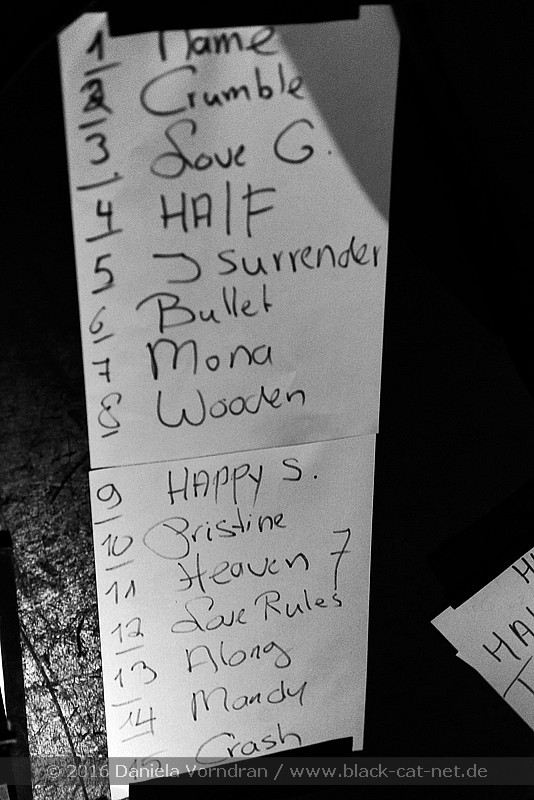 1 Name
2 Crumble
3 Love G.
4 HAlF
5 I surrender
6 Bullet
7 Mona
8 Wooden
9 HAPPY S.
10 Pristine
11 Heaven 7
12 Love Rules
13 Along
14 Mandy
15 Crash
HA
© 2016 Daniela Vorndran / www.black-cat-net.de